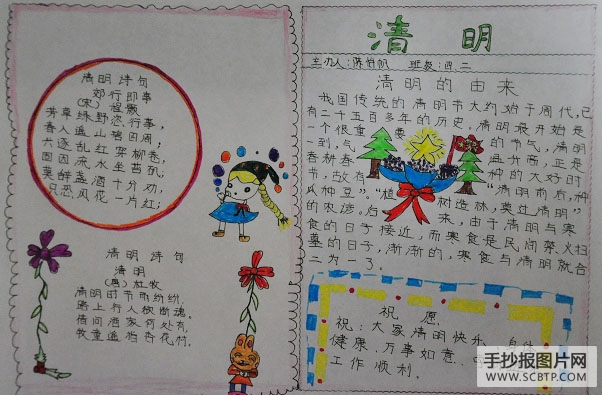 清明诗句
郊行即事
(宋) 程颢
芳草绿野恣行事,
春入遥山碧四周;
逐乱红穿柳巷,
流水坐苔矶;
莫辞盏酒十分劝,
只恐风花一片红;
清明诗句
清明
(唐) 杜牧
清明时节雨纷纷,
路上行人欲断魂。
借问酒家何处有,
牧童遥指杏花村。
清 明
主办人:陈 帆 班级:四二
清明的由来
我国传统的清明节大约始于周代,已
有二十五百多年的历史,清明最开始是
一个很重要 的节气,清明
一到,气 升高,正是
春耕春 种的大好时
节,故有 “清明前后,种
瓜种豆”。“植 树造林,莫过清明”
的农谚。后 来,由于清明与寒
食的日子接近,而寒食是民间禁火扫
墓的日子,渐渐的,寒食与清明就合
二为一了。
祝 愿
祝:大家清明快乐、身体
健康、万事如意、
工作顺利。
手抄报图片网
WWW.SCBTP.COM